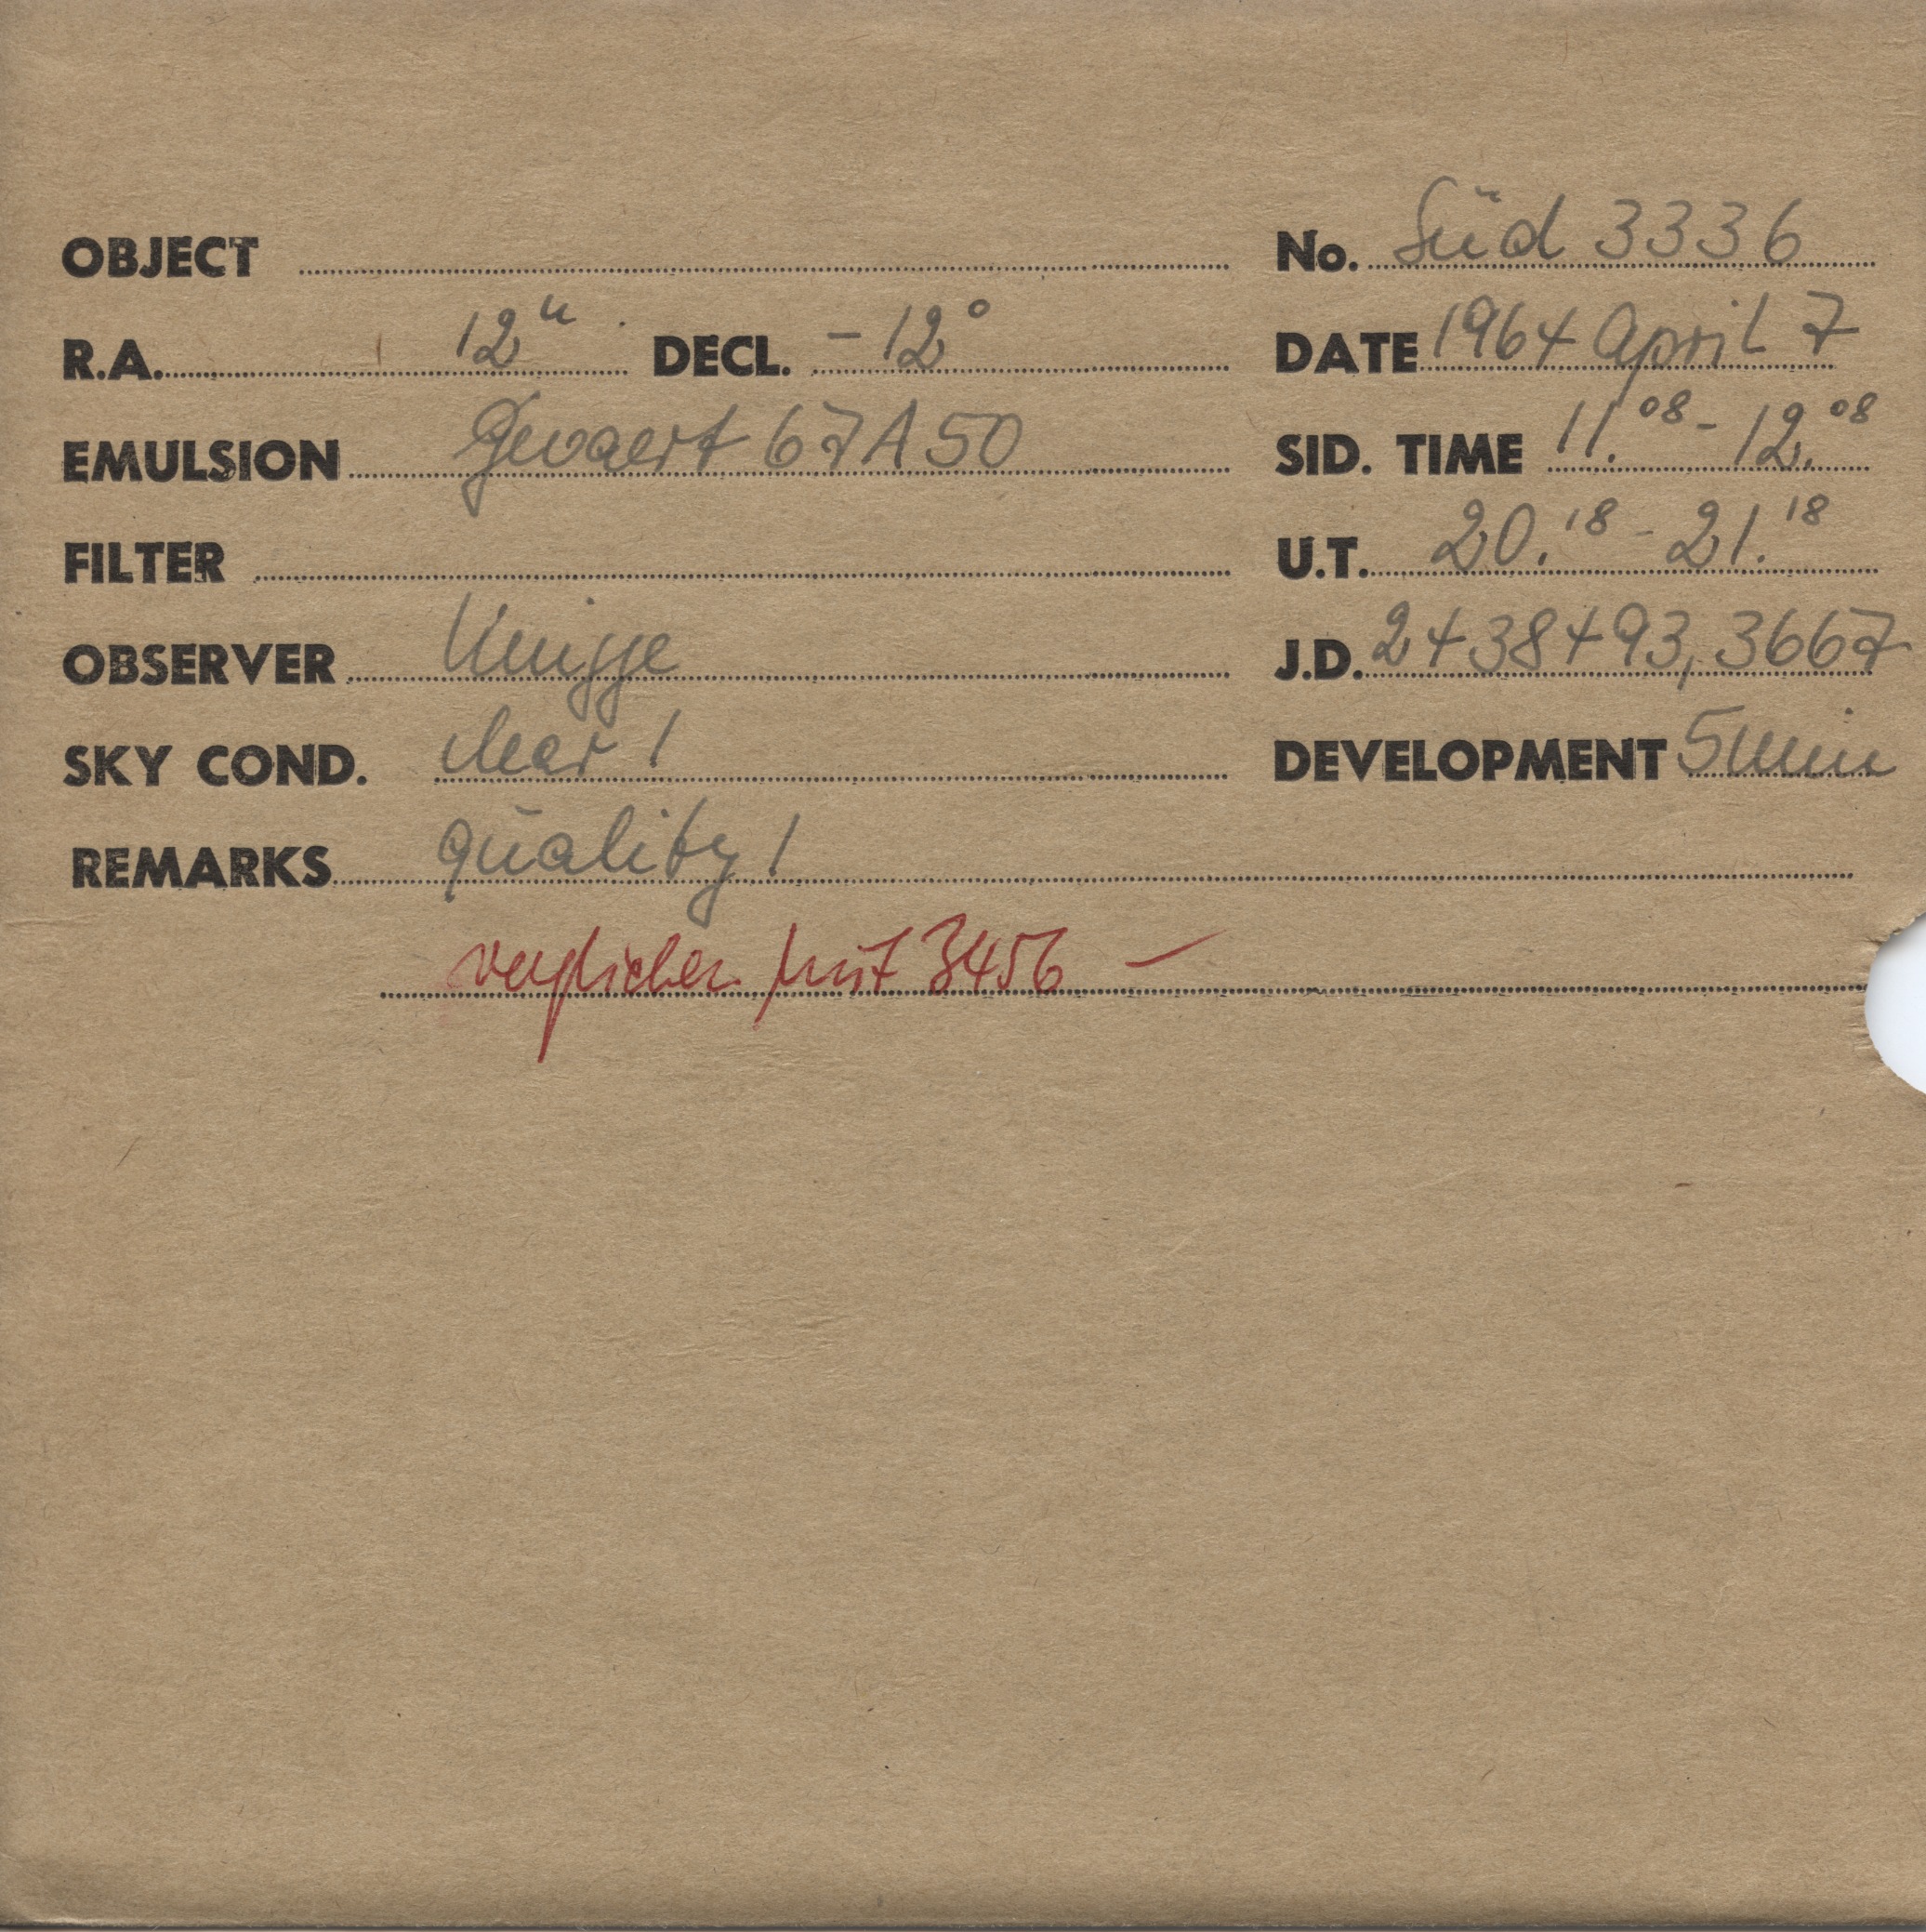 OBJECT No. Süd 3336
R.A. 12h DECL. -12° DATE 1964 April 7
EMULSION Gevaert 67A50 SID. TIME 11.08 - 12.08
FILTER U.T. 20.18 - 21.18
OBSERVER Knigge J.D. 2438493,3667
SKY COND. clear 1 DEVELOPMENT 5 min
REMARKS quality 1
verglichen mit 3456 —